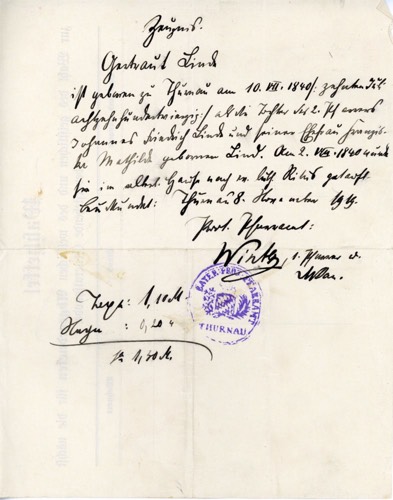 Zeugnis.
Gertraut Linde
ist geboren zu Thurnau am 10. VII. 1840 /: zehnten Juli
achtzehnhundertvierzig :/ als die Tochter des 2. Pfarrers
Johannes Friedrich Linde und seiner Ehefrau Franzis-
ka Mathilde geborenen Lind. Am 2. VIII. 1840 wurde
sie im elterl. Hause nach ev. luth. Ritus getauft.
Beurkundet: Thurnau 8. November 1919.
Prot. Pfarramt:
Winter, 1. Pfarrer
BAYER. PROT. PFARRAMT
THURNAU
: 1,10 M
: 0,20 "
1,30 M.